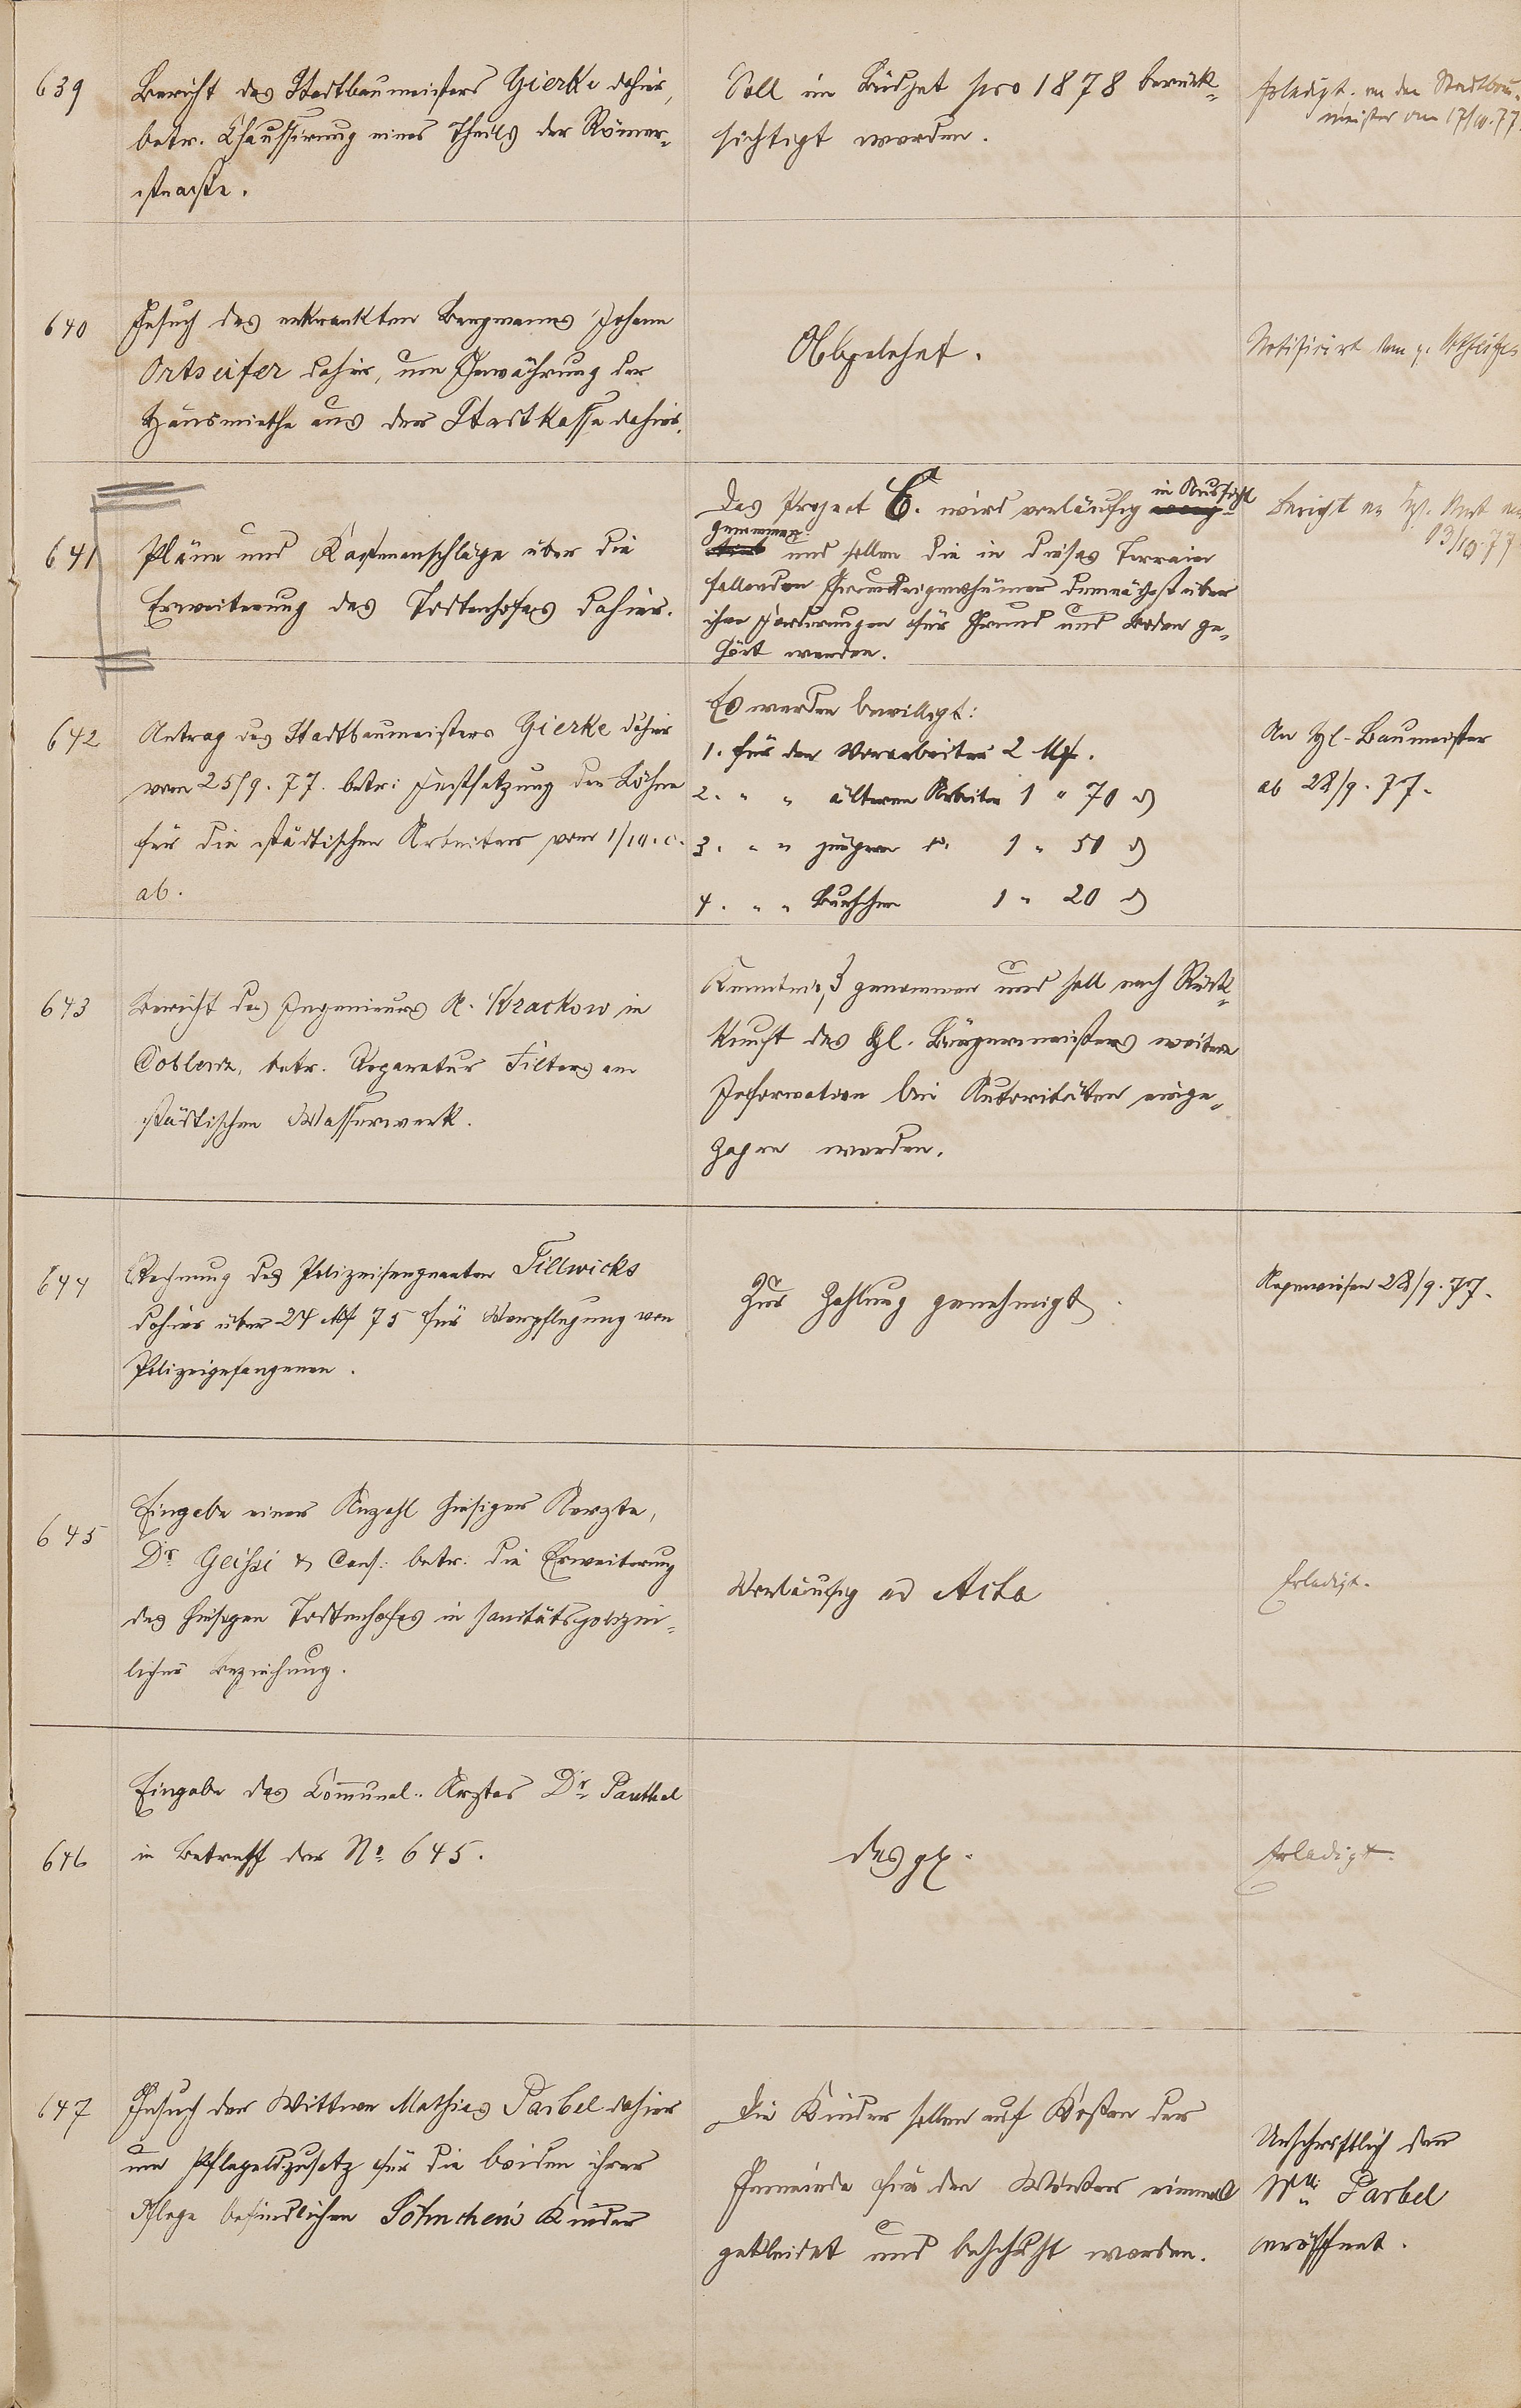 639
Bericht des Stadtbaumeisters Gierke dahier,
betr. Chaussirung eines Theils der Römer-
straße.
Soll im Budget pro 1878 berück-
sichtigt werden.
Erledigt. an den Stadtbau-
meister am 17/10.77.
640
Gesuch des erkrankten Bergmanns Johann
Ortseifer dahier, um Gewährung der
Hausmiethe aus der Stadtkasse dahier.
Abgelehnt.
Notificirt dem p. Ortseifer
641
Pläne und Kostenanschläge über die
Erweiterung des Todtenhofes dahier.
Das Project C. wird vorläufig in Aussicht
genommen
und sollen die in dieses Terrain
fallenden Grundeigenthümer demnächst über
ihre Forderungen für Grund und Boden ge-
hört werden.
Bericht an Kgl.
13/10.77
642
Antrag des Stadtbaumeisters Gierke dahier
vom 25/9.77. betr: Festsetzung der Löhne
für die städtischen Arbeiter vom 1/10.c.
ab.
Es werden bewilligt:
1. für den Vorarbeiter 2 Mk.
2. " " älteren Arbeiter 1 " 70 ₰
3. " " jüngern do. 1 " 50 ₰
4. " " Burschen 1 " 20 ₰
An Hl. Baumeister
ab 28/9.77.
643
Bericht des Ingenieurs A. Krackow in
Coblenz, betr. Reparatur Filters am
städtischen Wasserwerk.
Kenntniß genommen und soll nach Rück-
kunft des Hl. Bürgermeisters weitere
Information bei Autoritäten einge-
zogen werden.
644
Rechnung des Polizeisergeanten Fillwicks
dahier über 24 Mk 75 für Verpflegung von
Polizeigefangenen.
Zur Zahlung genehmigt.
Angewiesen 28/9.77.
645
Eingabe einer Anzahl hiesiger Aerzte,
Dr. & Cons: betr. die Erweiterung
des hiesigen Todtenhofes in sanitätspolizei-
licher Beziehung.
Vorläufig ad Acta
Erledigt.
646
Eingabe des Communal-Arztes Dr. Panthel
in Betreff der No. 645.
desgl.
Erledigt.
647
Gesuch der Wittwe Mathias Parbel dahier
um Pflegeldzusatz für die beiden ihrer
Pflege befindlichen Söhnchen's Kinder
Die Kinder sollen auf Kosten der
Gemeinde für den Winter einmal
gekleidet und beschuht werden.
Urschriftlich der
Parbel
eröffnet.